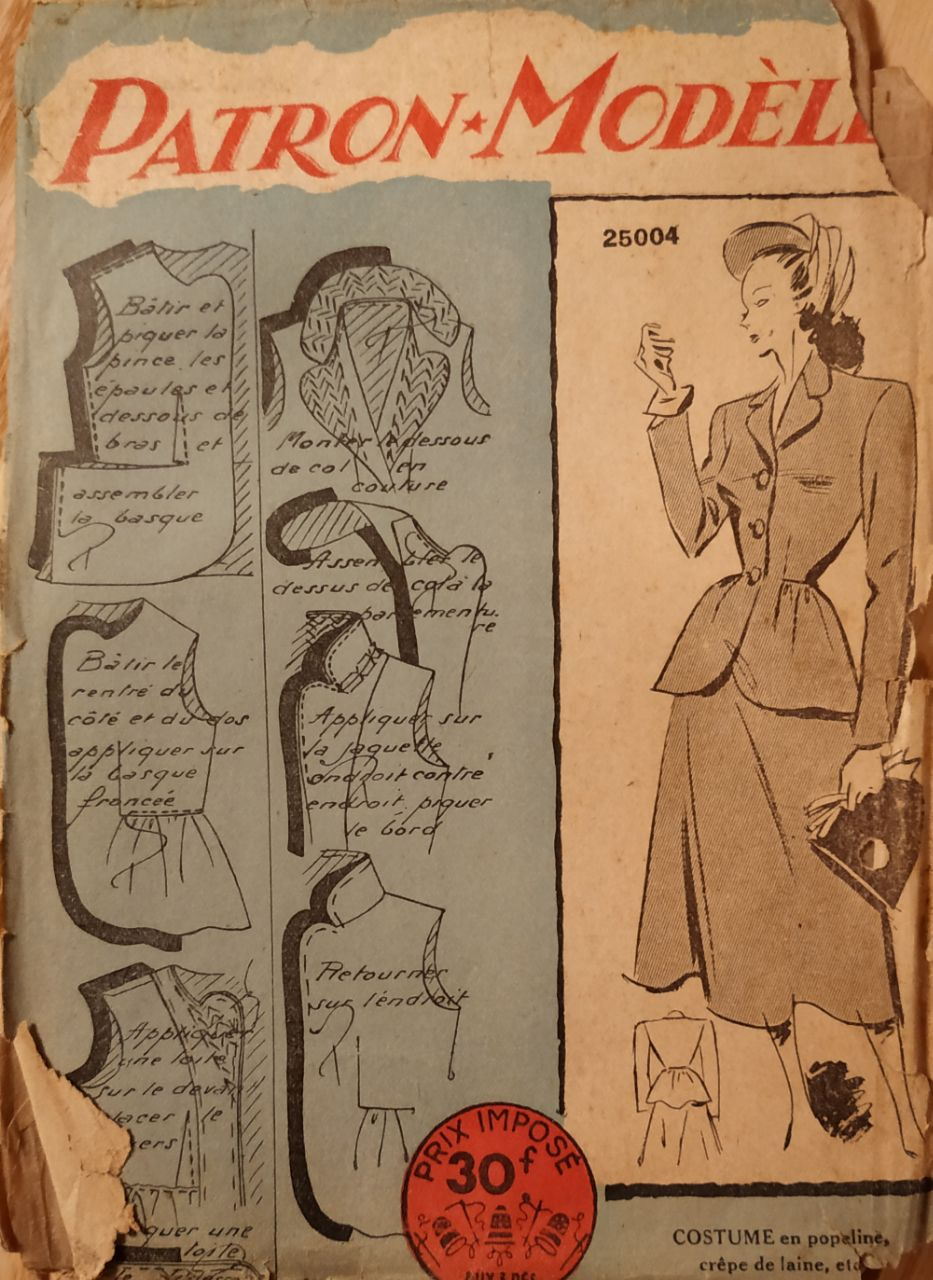 PATRON★MODÈL
25004
Bâtir et
piquer la
pince les
épaules et
dessous de
bras et
assembler
la basque
Bâtir le
rentré du
côté et du dos
appliquer sur
la basque
froncée
Appliquer
une toile
sur le devant
lacer le
ers
quer une
toile
Monter le dessous
de col en
couture
Assembler le
dessus de col à la
parementu.
re
Appliquer sur
la jaquette
endroit contre
endroit, piquer
le bord
Retourner
sur l'endroit
PRIX IMPOSÉ
30f
AUX 3 DÉS
COSTUME en popeline,
crêpe de laine, etc